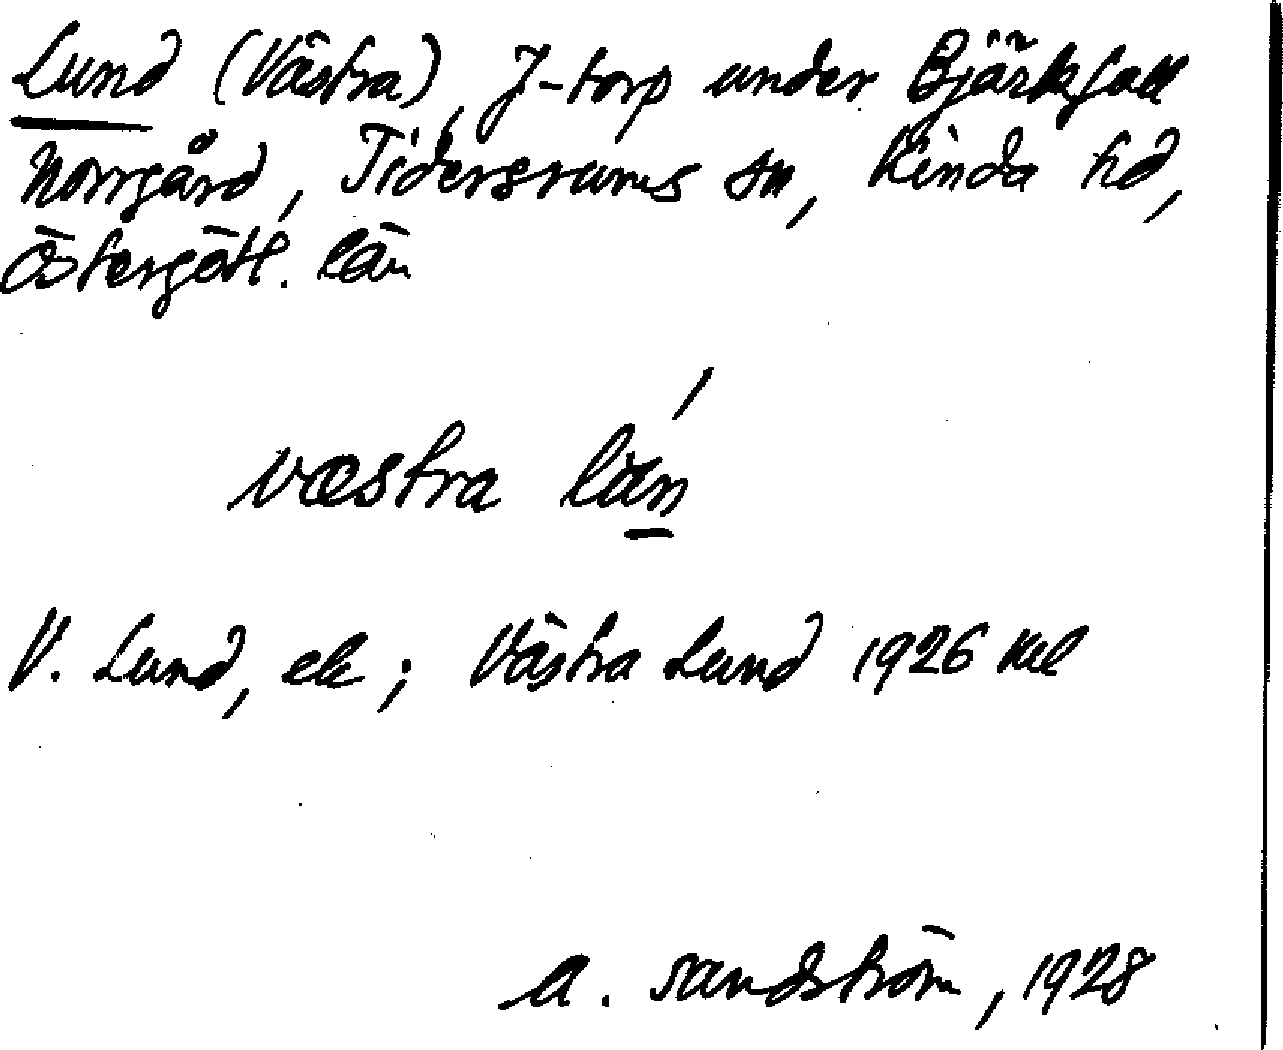 Lund (Västra), J-torp under Bjärkfall
Norrgård, Tidersrums sn, Kinda hd,
Östergötl. län
væstra lún
V. Lund, ek; Västra Lund 1926 Kul
A. Sandström, 1928